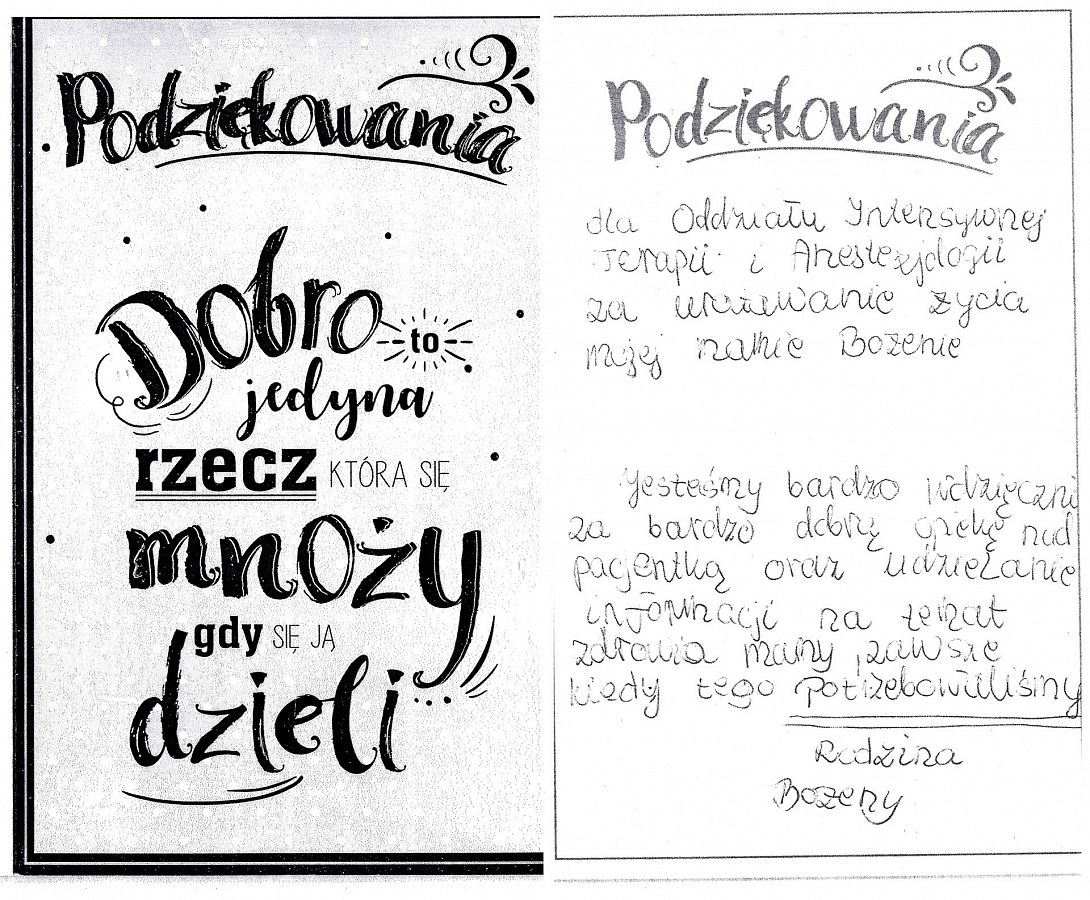 Podziękowania
Dobro
to
jedyna
rzecz KTÓRA SIĘ
mnoży
gdy SIĘ JĄ
dzieli...
Podziękowania
dla Oddziału Intensywnej
Terapii i Anestezjologii
za uratowanie życia
mojej mamie Bożenie
Jesteśmy bardzo wdzięczni
za bardzo dobrą opiekę nad
pacjentką oraz udzielanie
informacji na temat
zdrowia mamy, zawsze
kiedy tego potrzebowaliśmy
Rodzina
Bożeny